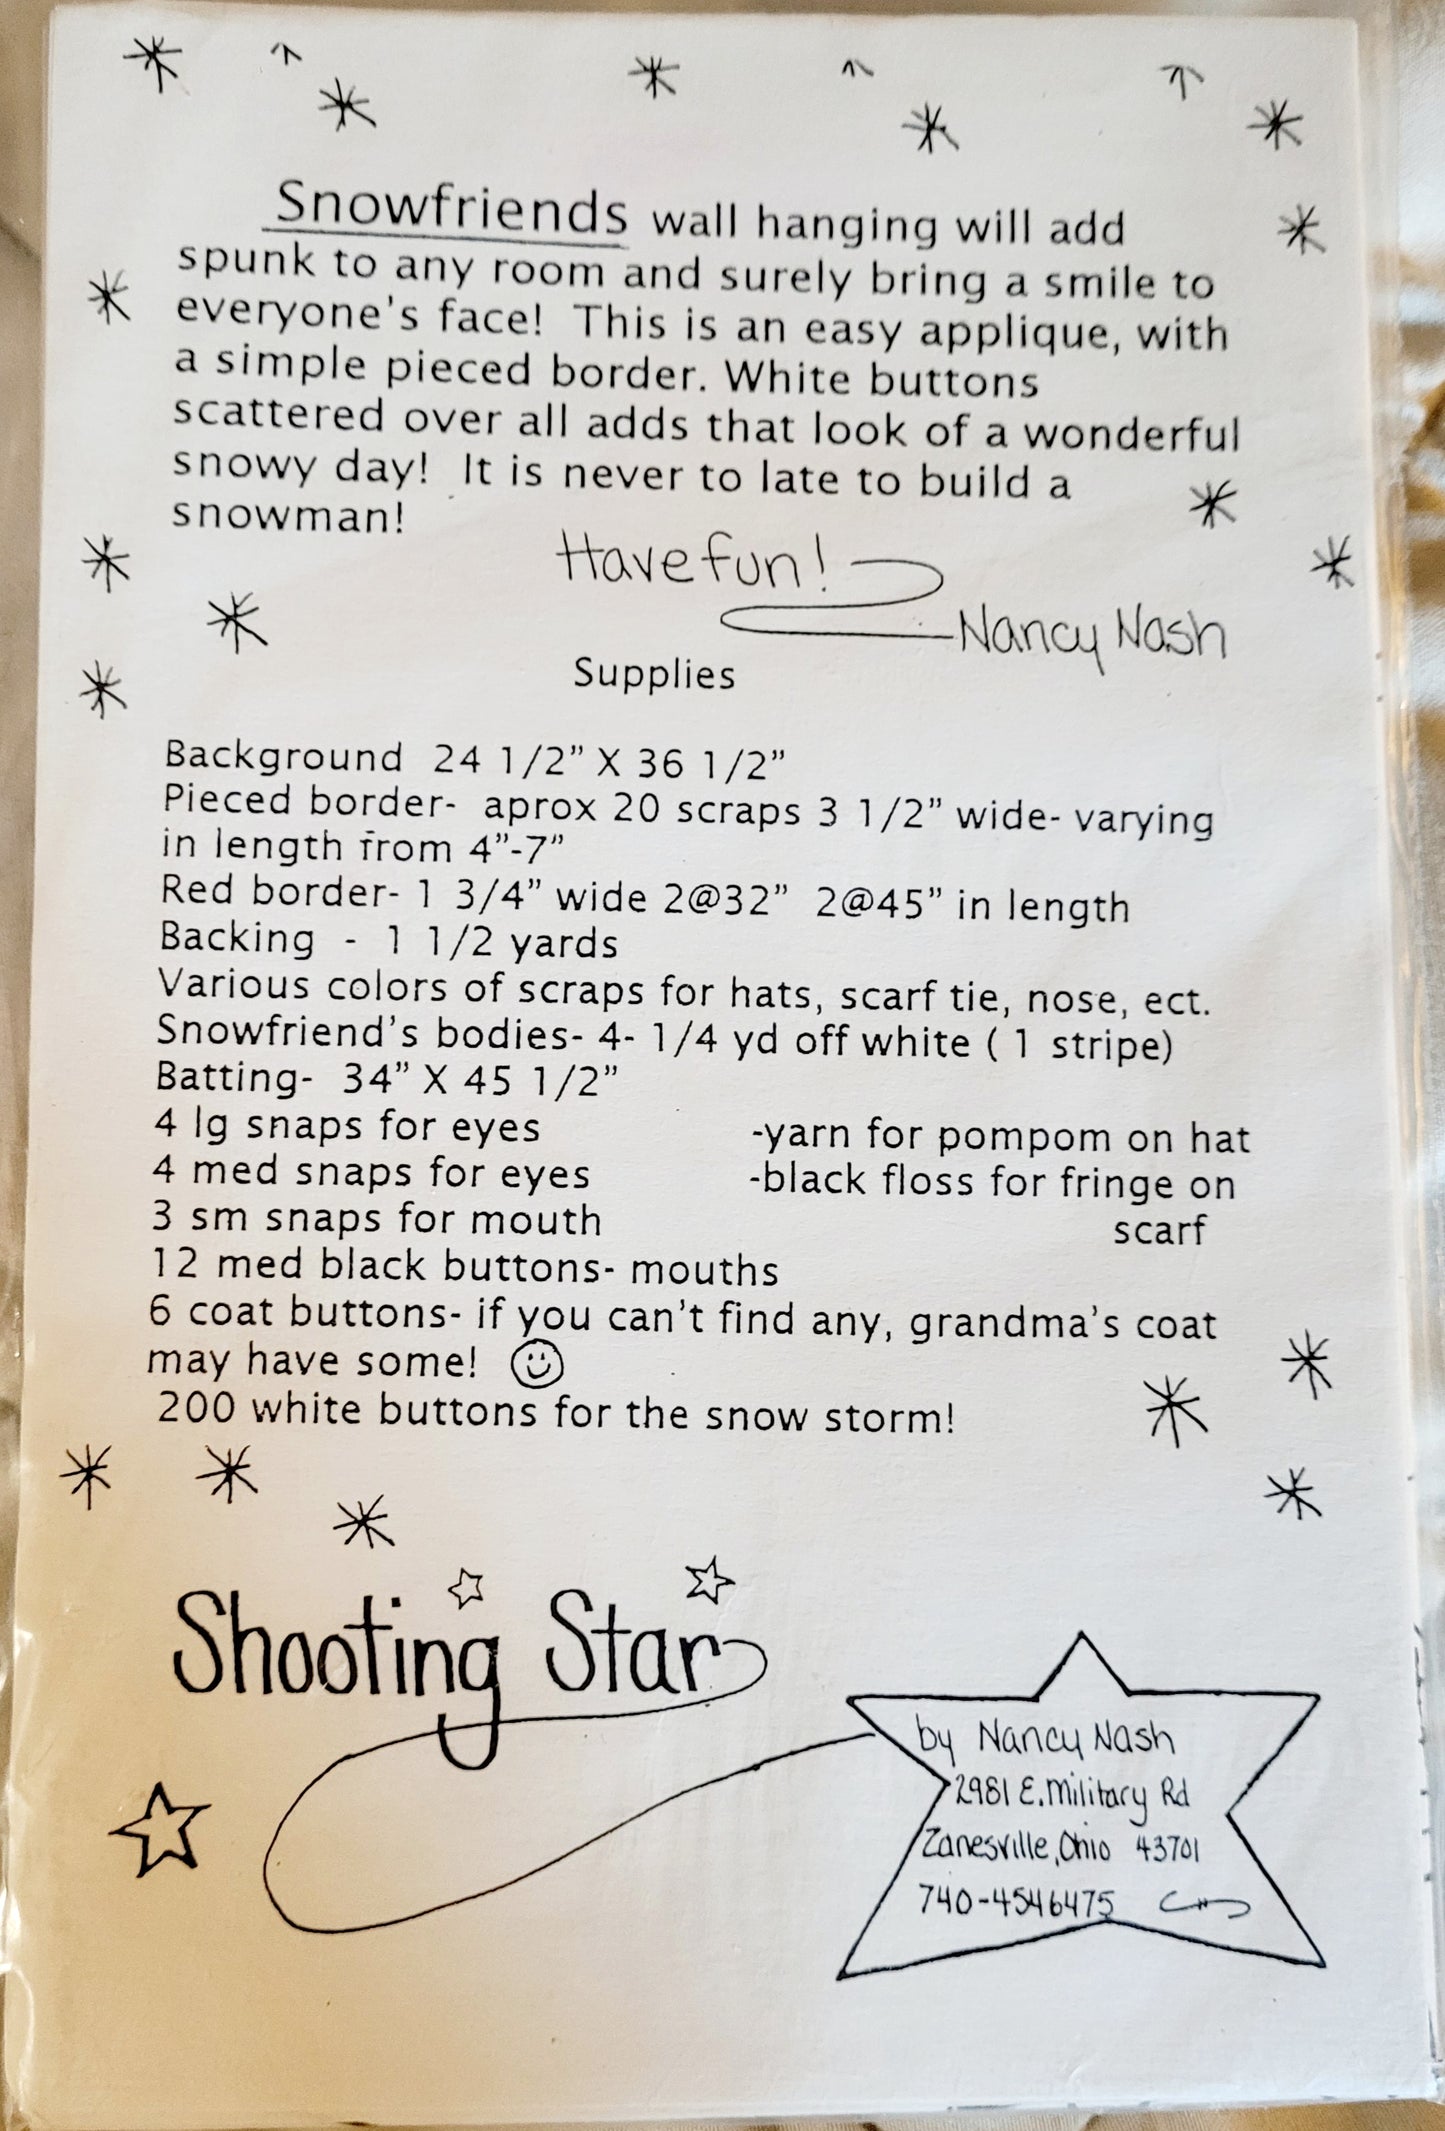 Snowfriends wall hanging will add
spunk to any room and surely bring a smile to
everyone's face!  This is an easy applique, with
a simple pieced border. White buttons
scattered over all adds that look of a wonderful
snowy day!  It is never to late to build a
snowman!
Have fun!
Nancy Nash
Supplies
Background  24 1/2" X 36 1/2"
Pieced border-  aprox 20 scraps 3 1/2" wide- varying
in length from 4"-7"
Red border- 1 3/4" wide 2@32"  2@45" in length
Backing  -  1 1/2 yards
Various colors of scraps for hats, scarf tie, nose, ect.
Snowfriend's bodies- 4- 1/4 yd off white ( 1 stripe)
Batting-  34" X 45 1/2"
4 lg snaps for eyes
4 med snaps for eyes
3 sm snaps for mouth
-yarn for pompom on hat
-black floss for fringe on
scarf
12 med black buttons- mouths
6 coat buttons- if you can't find any, grandma's coat
may have some!
200 white buttons for the snow storm!
Shooting Star
by Nancy Nash
2981 E. Military Rd
Zanesville, Ohio 43701
740-4546475